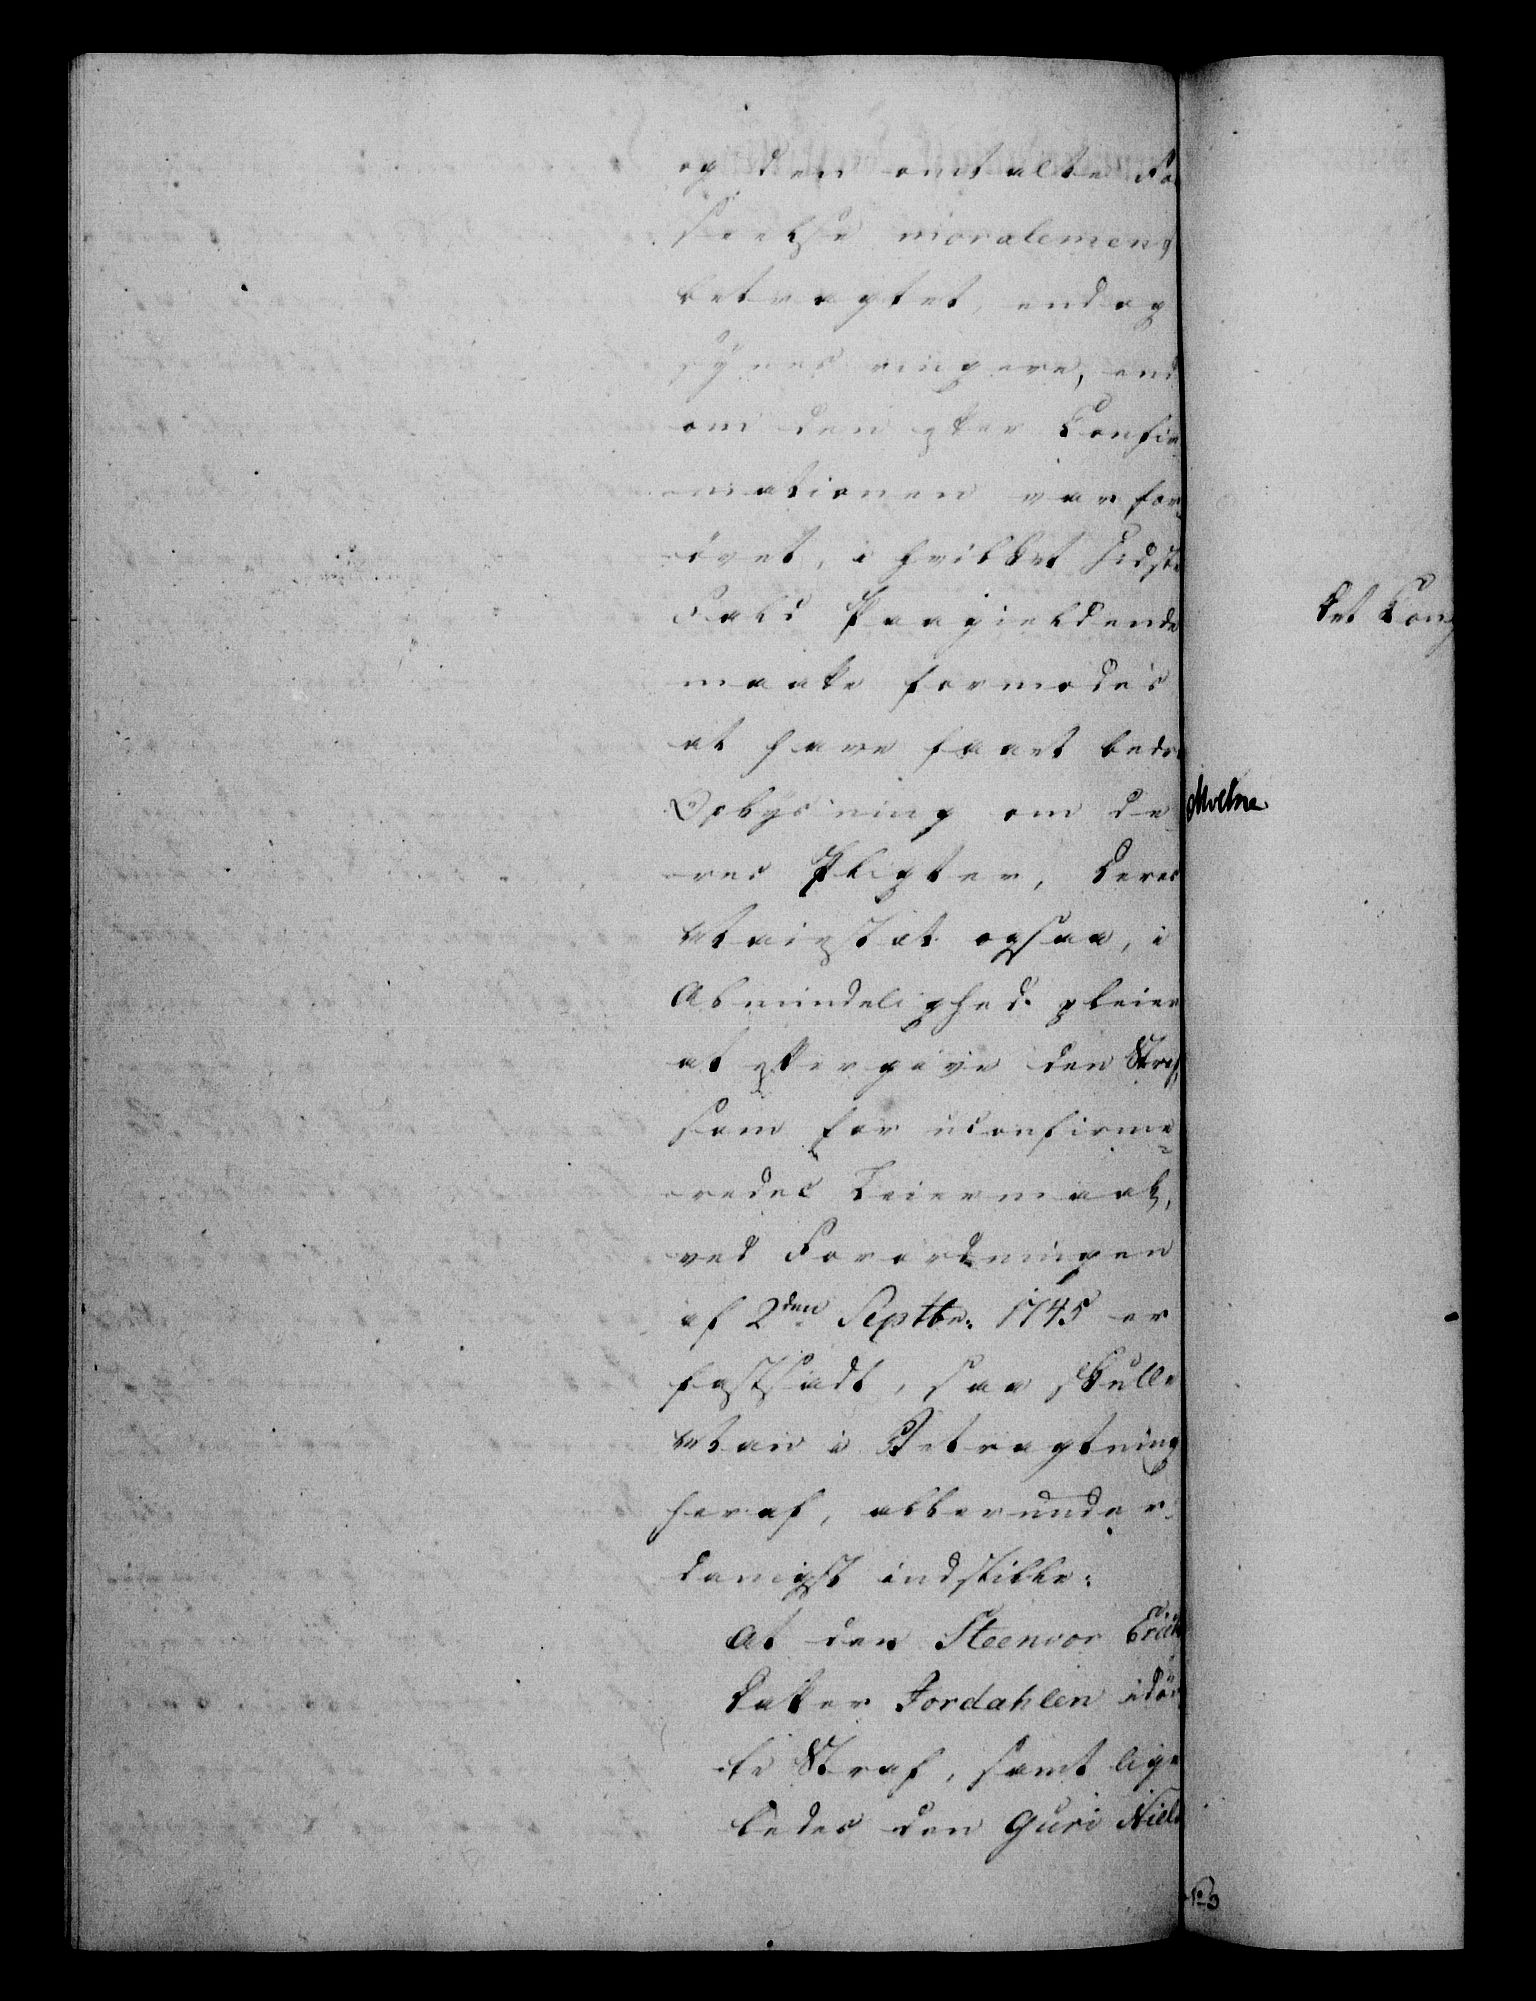 og den omtalte For
seelse moralement
betragtet, endog
synes ringere, end
om den efter Confir
mationen var for
övet, i hvilket sidste
Fald Paagieldende
maatte formodes
at have faaet bedre
Oplysning om de
res Pligter, Deres
Maiestæt ogsaa, i
Almindelighed pleier
at eftergive den Straf,
som for uconfirme-
redes Leiermaal,
ved Forordningen
af 2den Septbr. 1745 er
fastsadt, saa skulle
Man i Betragtning
heraf, allerunder-
danigst indstille:
At den Steenvor Erichs
Datter Jordahlen idöm
te Straf, samt lige
ledes den Guri Niels
Det Kong